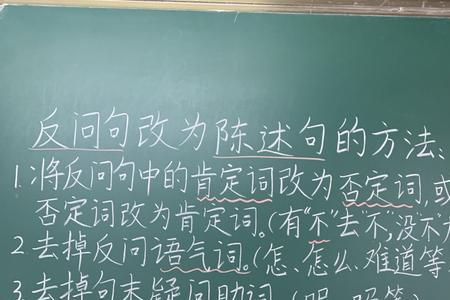 反问句改为陈述句的方法:
1.将反问句中的肯定词改为否定词,或
否定词改为肯定词。(有“不”去“不”,没“不”
2.去掉反问语气词。(怎、怎么、难道等
3.去掉句末疑问助词